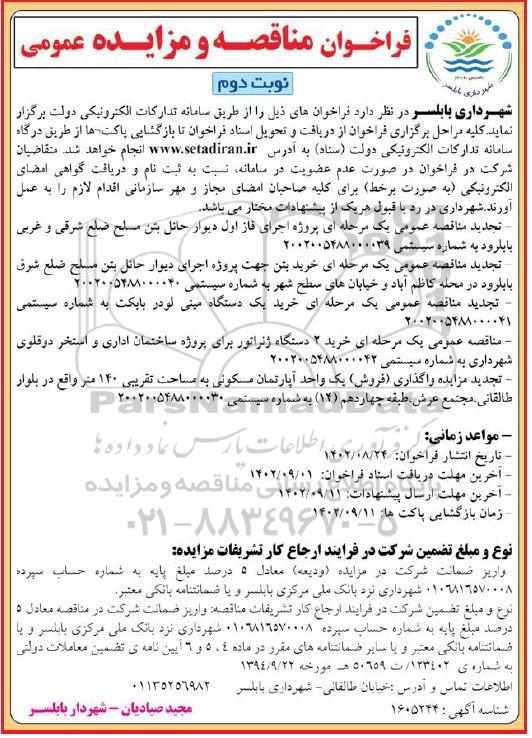 فراخـوان مناقصـه و مزایـده عمومی
تاسیس ۱۳۰۸
شهرداری بابلسر
نوبت دوم
شهـرداری بابلسـر در نظر دارد فراخوان های ذیل را از طریق سامانه تدارکات الکترونیکی دولت برگزار
نماید.کلیه مراحل برگزاری فراخوان از دریافت و تحویل اسناد فراخوان تا بازگشایی پاکت¬ها از طریق درگاه
سامانه تدارکات الکترونیکی دولت (ستاد) به آدرس www.setadiran.ir انجام خواهد شد. متقاضیان
شرکت در فراخوان در صورت عدم عضویت در سامانه، نسبت به ثبت نام و دریافت گواهی امضای
الکترونیکی (به صورت برخط) برای کلیه صاحبان امضای مجاز و مهر سازمانی اقدام لازم را به عمل
آورند.شهرداری در رد یا قبول هریک از پیشنهادات مختار می باشد.
– تجدید مناقصه عمومی یک مرحله ای پروژه اجرای فاز اول دیوار حائل بتن مسلح ضلع شرقی و غربی
بابلرود به شماره سیستمی ۲۰۰۲۰۰۵۴۸۸۰۰۰۰۳۹
– تجدید مناقصه عمومی یک مرحله ای خرید بتن جهت پروژه اجرای دیوار حائل بتن مسلح ضلع شرق
بابلرود در محله کاظم آباد و خیابان های سطح شهر به شماره سیستمی ۲۰۰۲۰۰۵۴۸۸۰۰۰۰۴۰
– تجدید مناقصه عمومی یک مرحله ای خرید یک دستگاه مینی لودر بابکت به شماره سیستمی
۲۰۰۲۰۰۵۴۸۸۰۰۰۰۴۱
– مناقصه عمومی یک مرحله ای خرید ۲ دستگاه ژنراتور برای پروژه ساختمان اداری و استخر دوقلوی
شهرداری به شماره سیستمی ۲۰۰۲۰۰۵۴۸۸۰۰۰۰۴۲
– تجدید مزایده واگذاری (فروش) یک واحد آپارتمان مسکونی به مساحت تقریبی ۱۴۰ متر واقع در بلوار
طالقانی،مجتمع عرش،طبقه چهاردهم (۱۴) به شماره سیستمی ۲۰۰۲۰۰۵۴۸۸۰۰۰۰۳۰
ParsNamadData
مرکز فرآوری اطلاعات پارس نماد داده ها
– مواعد زمانی:
– تاریخ انتشار فراخوان: ۱۴۰۲/۰۸/۲۴
– آخرین مهلت دریافت اسناد فراخوان: ۱۴۰۲/۰۹/۰۱
پایگاه اطلاع رسانی مناقصه و مزایده
– آخرین مهلت ارسال پیشنهادات: ۱۴۰۲/۰۹/۱۱
– زمان بازگشایی پاکت ها: ۱۴۰۲/۰۹/۱۱
۰۲۱-۸۸۳۴۹۶۷۰-۵
نوع و مبلغ تضمین شرکت در فرایند ارجاع کار تشریفات مزایده:
واریز ضمانت شرکت در مزایده (ودیعه) معادل ۵ درصد مبلغ پایه به شماره حساب سپرده
۰۱۰۶۸۱۶۵۷۰۰۰۸ شهرداری نزد بانک ملی مرکزی بابلسر و یا ضمانتنامه بانکی معتبر.
نوع و مبلغ تضمین شرکت در فرایند ارجاع کار تشریفات مناقصه: واریز ضمانت شرکت در مناقصه معادل ۵
درصد مبلغ پایه به شماره حساب سپرده ۰۱۰۶۸۱۶۵۷۰۰۰۸ شهرداری نزد بانک ملی مرکزی بابلسر و یا
ضمانتنامه بانکی معتبر و یا سایر ضمانتنامه های مقرر در ماده ۴ ، ۵ و ۶ آیین نامه ی تضمین معاملات دولتی
به شماره ی ۱۲۳۴۰۲/ ت ۵۰۶۵۹ هـ مورخه ۱۳۹۴/۹/۲۲
اطلاعات تماس و آدرس :خیابان طالقانی- شهرداری بابلسر ۰۱۱۳۵۲۵۶۹۸۲
شناسه آگهی : ۱۶۰۵۲۴۴ مجید صیادیان – شهردار بابلسـر